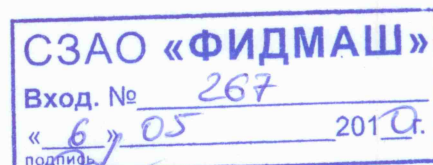 СЗАО «ФИДМАШ»
Вход. № 267
« 6 » 05 2010г.
подпись